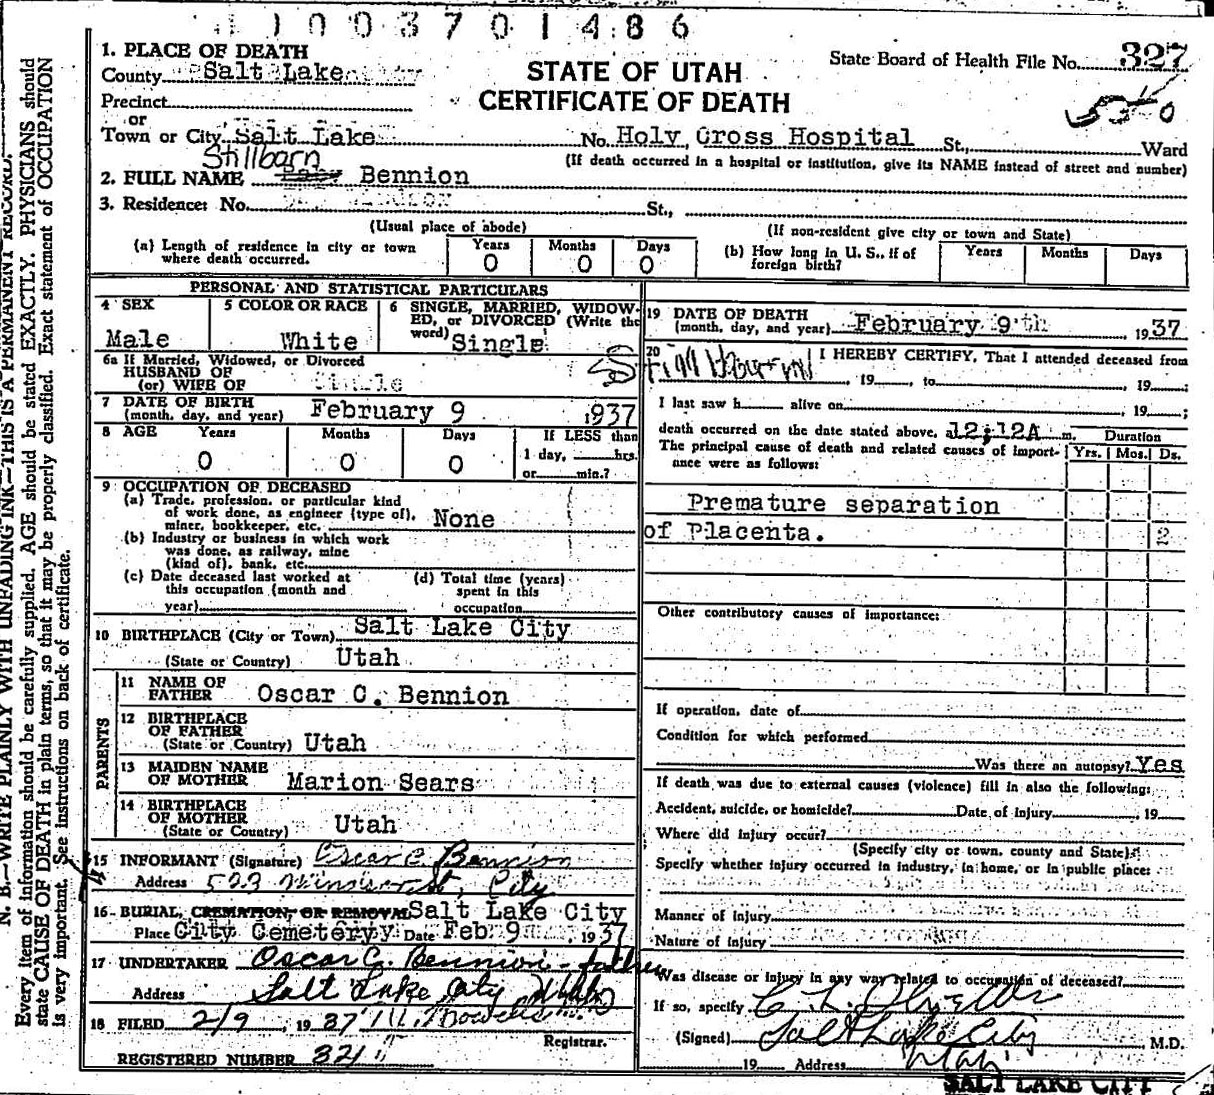 1003701486
1. PLACE OF DEATH
County Salt Lake
STATE OF UTAH
CERTIFICATE OF DEATH
State Board of Health File No. 327
Precinct
or
Town or City Salt Lake No. Holy Cross Hospital St., Ward
(If death occurred in a hospital or institution, give its NAME instead of street and number)
Stillborn
2. FULL NAME Baby Bennion
3. Residence: No. St.,
(Usual place of abode) (If non-resident give city or town and State)
(a) Length of residence in city or town where death occurred. Years 0 Months 0 Days 0
(b) How long in U. S., if of foreign birth? Years Months Days
PERSONAL AND STATISTICAL PARTICULARS
4 SEX Male
5 COLOR OR RACE White
6 SINGLE, MARRIED, WIDOWED, or DIVORCED (Write the word) Single
6a If Married, Widowed, or Divorced
HUSBAND OF
(or) WIFE OF Single
7 DATE OF BIRTH
(month, day, and year) February 9 1937
8 AGE Years Months Days If LESS than
0 0 0 1 day, hrs.
or min.?
9 OCCUPATION OF DECEASED
(a) Trade, profession, or particular kind
of work done, as engineer (type of),
miner, bookkeeper, etc. None
(b) Industry or business in which work
was done, as railway, mine
(kind of), bank, etc.
(c) Date deceased last worked at
this occupation (month and
year)
(d) Total time (years)
spent in this
occupation
10 BIRTHPLACE (City or Town) Salt Lake City
(State or Country) Utah
PARENTS
11 NAME OF
FATHER Oscar C. Bennion
12 BIRTHPLACE
OF FATHER
(State or Country) Utah
13 MAIDEN NAME
OF MOTHER Marion Sears
14 BIRTHPLACE
OF MOTHER
(State or Country) Utah
15 INFORMANT (Signature) Oscar C. Bennion
Address City
16 BURIAL, CREMATION, OR REMOVAL Salt Lake City
Place City Cemetery Date Feb 9, 1937
17 UNDERTAKER Oscar C. Bennion - father
Address Salt Lake City Utah
18 FILED 2/9, 1937
Registrar.
REGISTERED NUMBER 321
19 DATE OF DEATH
(month, day, and year) February 9th 1937
20 Stillborn I HEREBY CERTIFY, That I attended deceased from
, 19 , to , 19 ;
I last saw h alive on , 19 ;
death occurred on the date stated above, at 12;12A m.
The principal cause of death and related causes of importance were as follows:
Duration
Yrs. Mos. Ds.
Premature separation
of Placenta. 2
Other contributory causes of importance:
If operation, date of
Condition for which performed
Was there an autopsy? Yes
If death was due to external causes (violence) fill in also the following:
Accident, suicide, or homicide? Date of injury , 19
Where did injury occur?
(Specify city or town, county and State)
Specify whether injury occurred in industry, in home, or in public place:
Manner of injury
Nature of injury
Was disease or injury in any way related to occupation of deceased?
If so, specify
(Signed) Salt Lake City M.D.
19 Address Utah
SALT LAKE CITY
N. B.—WRITE PLAINLY WITH UNFADING INK—THIS IS A PERMANENT RECORD.
Every item of information should be carefully supplied. AGE should be stated EXACTLY. PHYSICIANS should
state CAUSE OF DEATH in plain terms, so that it may be properly classified. Exact statement of OCCUPATION
is very important. See instructions on back of certificate.